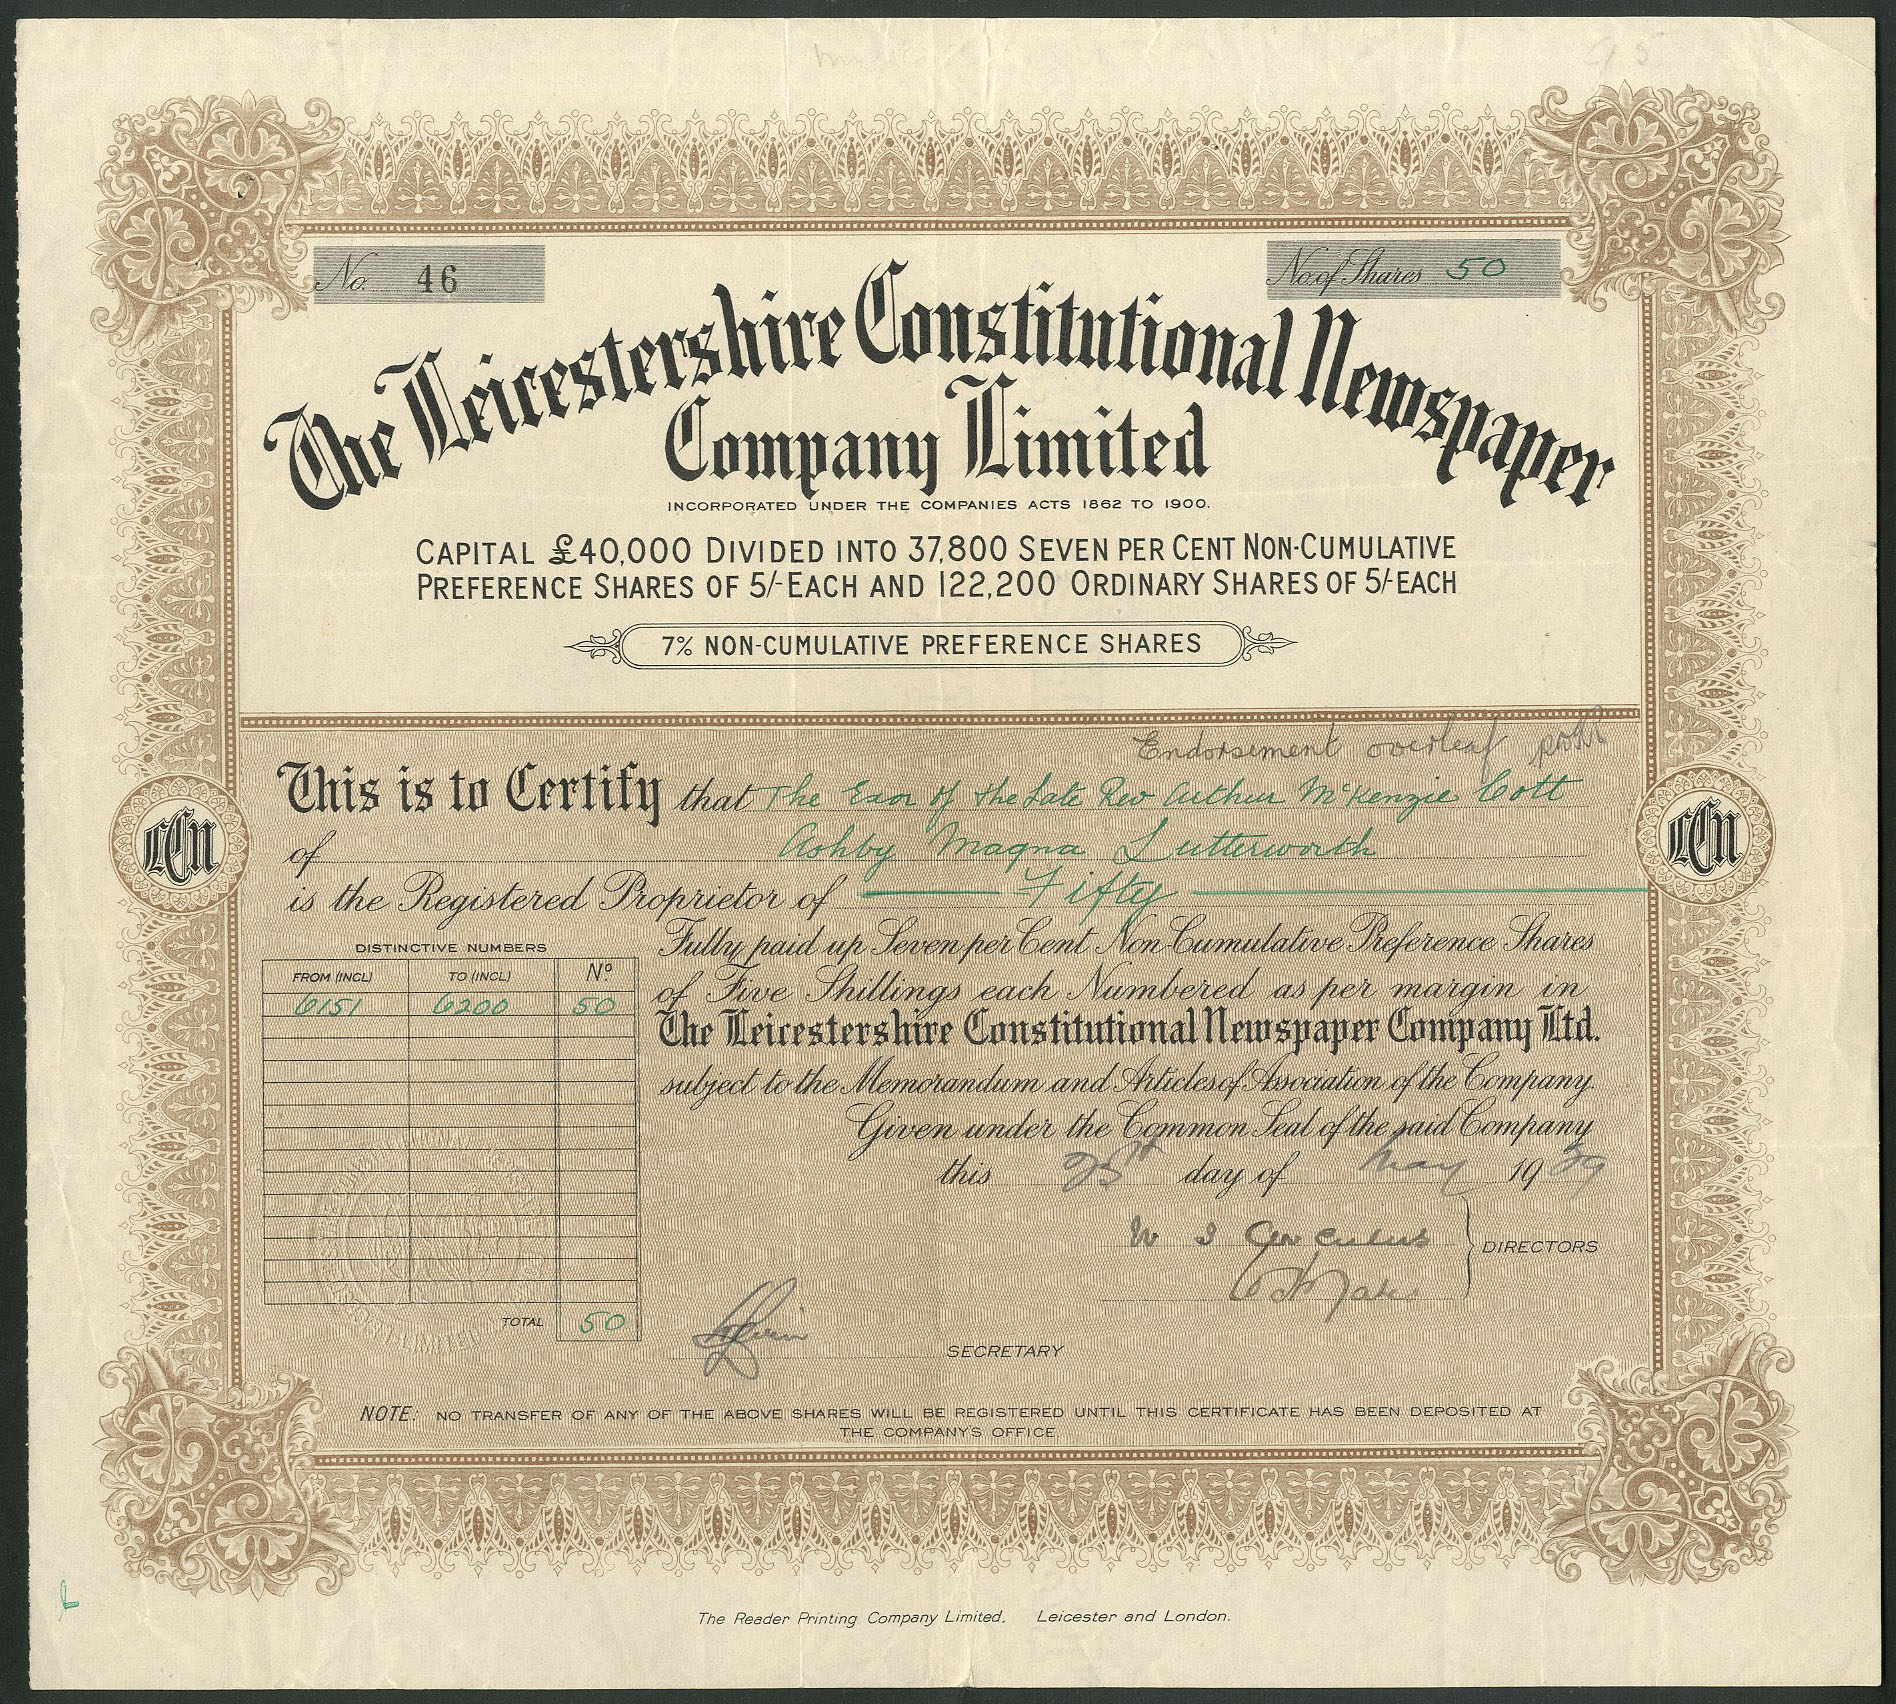 No. 46
No. of Shares 50
The Leicestershire Constitutional Newspaper
Company Limited
INCORPORATED UNDER THE COMPANIES ACTS 1862 TO 1900.
CAPITAL £40,000 DIVIDED INTO 37,800 SEVEN PER CENT NON-CUMULATIVE
PREFERENCE SHARES OF 5/- EACH AND 122,200 ORDINARY SHARES OF 5/- EACH
7% NON-CUMULATIVE PREFERENCE SHARES
Endorsement overleaf
This is to Certify that The Exor of the Late Rev Arthur McKenzie Cott
of Ashby Magna Lutterworth
is the Registered Proprietor of Fifty
Fully paid up Seven per Cent Non-Cumulative Preference Shares
of Five Shillings each Numbered as per margin in
The Leicestershire Constitutional Newspaper Company Ltd.
subject to the Memorandum and Articles of Association of the Company.
Given under the Common Seal of the said Company
this 25th day of May 1929
DISTINCTIVE NUMBERS
FROM (INCL) TO (INCL) No
6151 6200 50
TOTAL 50
DIRECTORS
SECRETARY
NOTE: NO TRANSFER OF ANY OF THE ABOVE SHARES WILL BE REGISTERED UNTIL THIS CERTIFICATE HAS BEEN DEPOSITED AT
THE COMPANYS OFFICE
LCN
LCN
The Reader Printing Company Limited, Leicester and London.